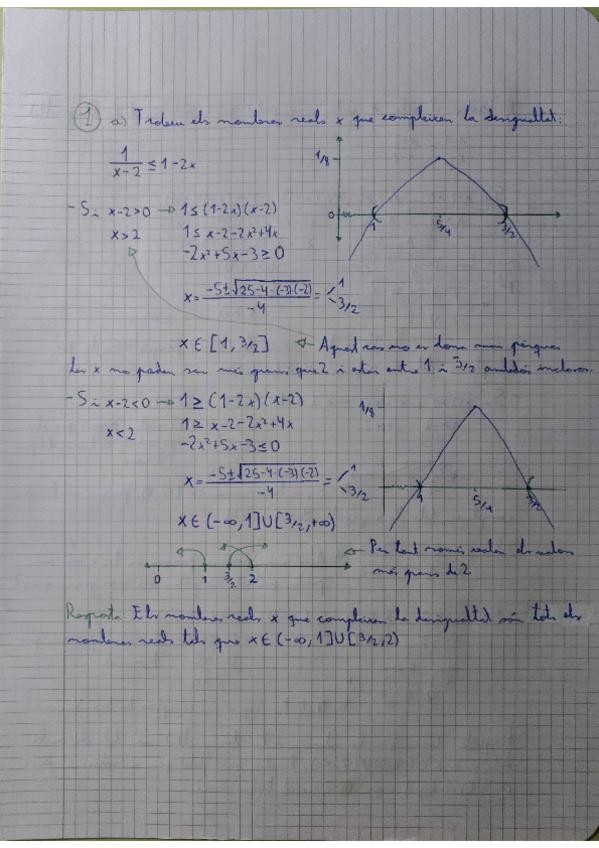 1 a) Trobeu els nombres reals x que compleixen la desigualtat:
1/(x-2) ≤ 1-2x
1/8
0
1
5/4
3/2
-Si x-2>0 → 1≤(1-2x)(x-2)
x>2
1≤ x-2-2x²+4x
-2x²+5x-3≥0
x= (-5±√(25-4·(-3)·(-2)))/-4 = 1
3/2
x∈[1,3/2] ← Aquest cas no es dona mai perque
les x no poden ser més grans que 2 i estar entre 1 i 3/2 ambdós inclosos.
-Si x-2<0 → 1≥(1-2x)(x-2)
x<2
1≥ x-2-2x²+4x
-2x²+5x-3≤0
x= (-5±√(25-4·(-3)(-2)))/-4 = 1
3/2
x∈(-∞,1]∪[3/2,+∞)
1/8
1
5/4
3/2
0
1
3/2
2
← Per tant només valen els valors
més grans de 2
Resposta: Els nombres reals x que compleixen la desigualtat són tots els
nombres reals tals que x∈(-∞,1]∪[3/2,2)